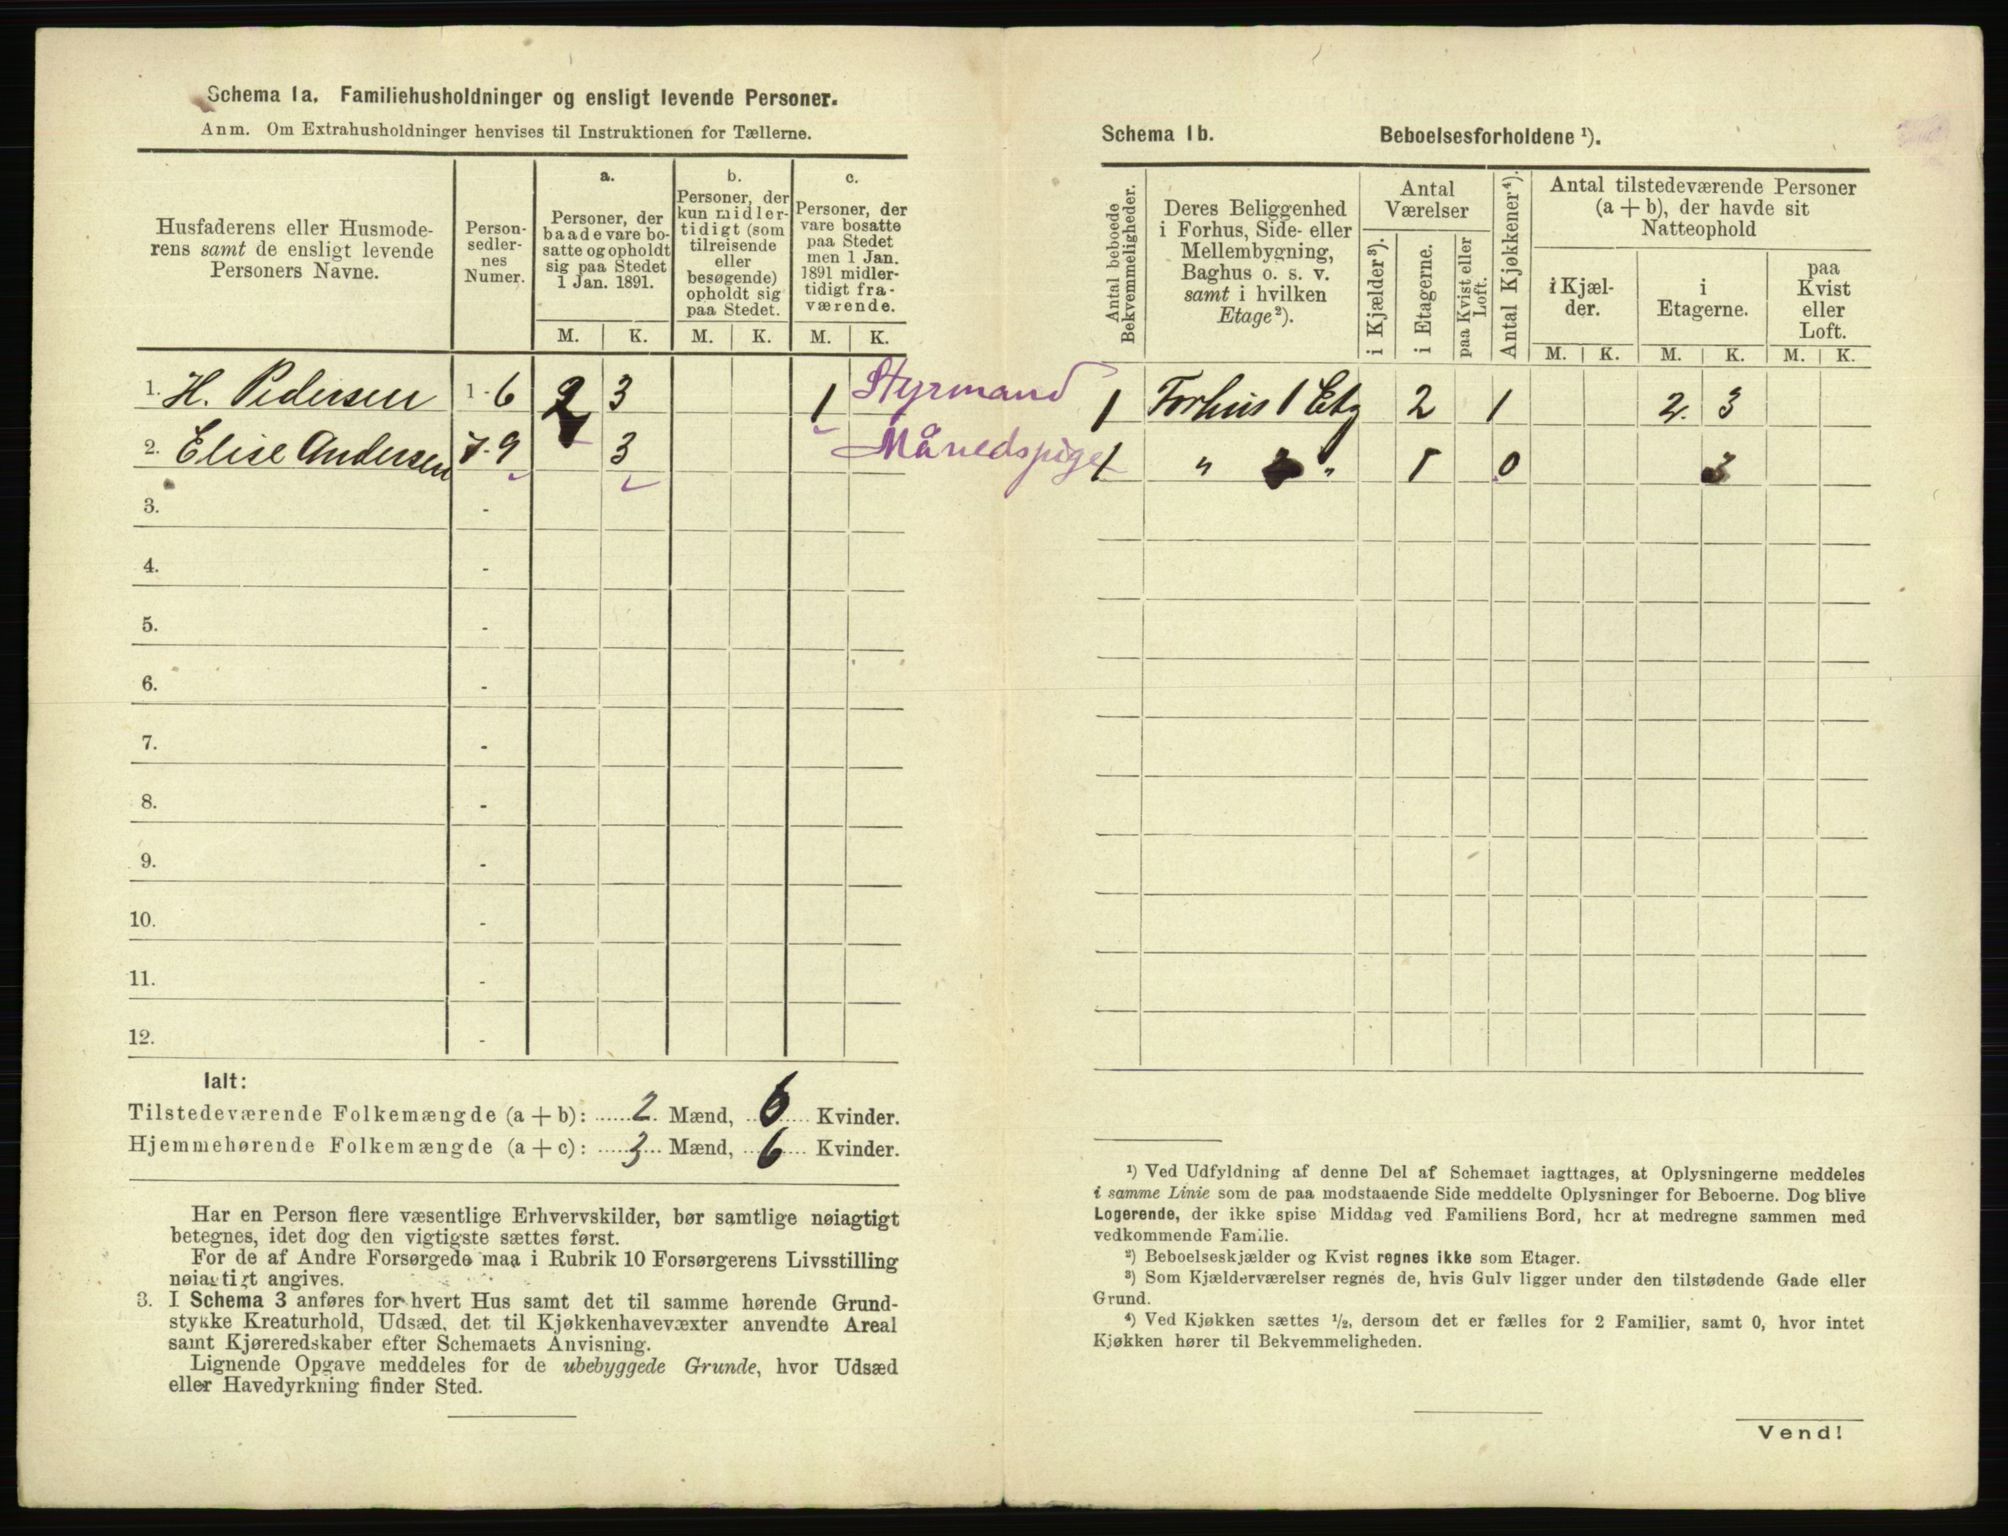 Schema 1a. Familiehusholdninger og ensligt levende Personer.
Anm. Om Extrahusholdninger henvises til Instruktionen for Tællerne.
Husfaderens eller Husmoderens samt de ensligt levende Personers Navne.
Personsedlernes Numer.
a.
Personer, der baade vare bosatte og opholdt sig paa Stedet 1 Jan. 1891.
b.
Personer, der kun midlertidigt (som tilreisende eller besøgende) opholdt sig paa Stedet.
c.
Personer, der vare bosatte paa Stedet men 1 Jan. 1891 midlertidigt fraværende.
M. K. M. K. M. K.
1. H. Pedersen 1-6 2 3 1 Styrmand
2. Elise Andersen 7-9 3 Månedspige
3. -
4. -
5. -
6. -
7. -
8. -
9. -
10. -
11. -
12. -
Ialt:
Tilstedeværende Folkemængde (a + b): 2 Mænd, 6 Kvinder.
Hjemmehørende Folkemængde (a + c): 3 Mænd, 6 Kvinder.
Har en Person flere væsentlige Erhvervskilder, bør samtlige nøiagtigt
betegnes, idet dog den vigtigste sættes først.
For de af Andre Forsørgede maa i Rubrik 10 Forsørgerens Livsstilling
nøiagtigt angives.
3. I Schema 3 anføres for hvert Hus samt det til samme hørende Grund-
stykke Kreaturhold, Udsæd, det til Kjøkkenhavevæxter anvendte Areal
samt Kjøreredskaber efter Schemaets Anvisning.
Lignende Opgave meddeles for de ubebyggede Grunde, hvor Udsæd
eller Havedyrkning finder Sted.
Schema 1b. Beboelsesforholdene ¹).
Antal beboede Bekvemmeligheder.
Deres Beliggenhed i Forhus, Side- eller Mellembygning, Baghus o. s. v. samt i hvilken Etage²).
Antal Værelser
i Kjælder³).
i Etagerne.
paa Kvist eller Loft.
Antal Kjøkkener⁴).
Antal tilstedeværende Personer (a + b), der havde sit Natteophold
i Kjælder.
i Etagerne.
paa Kvist eller Loft.
M. K. M. K. M. K.
1 Forhus 1 Etg 2 1 2. 3
1 " " 1 0 3
¹) Ved Udfyldning af denne Del af Schemaet iagttages, at Oplysningerne meddeles
i samme Linie som de paa modstaaende Side meddelte Oplysninger for Beboerne. Dog blive
Logerende, der ikke spise Middag ved Familiens Bord, her at medregne sammen med
vedkommende Familie.
²) Beboelseskjælder og Kvist regnes ikke som Etager.
³) Som Kjælderværelser regnes de, hvis Gulv ligger under den tilstødende Gade eller
Grund.
⁴) Ved Kjøkken sættes ½, dersom det er fælles for 2 Familier, samt 0, hvor intet
Kjøkken hører til Bekvemmeligheden.
Vend!